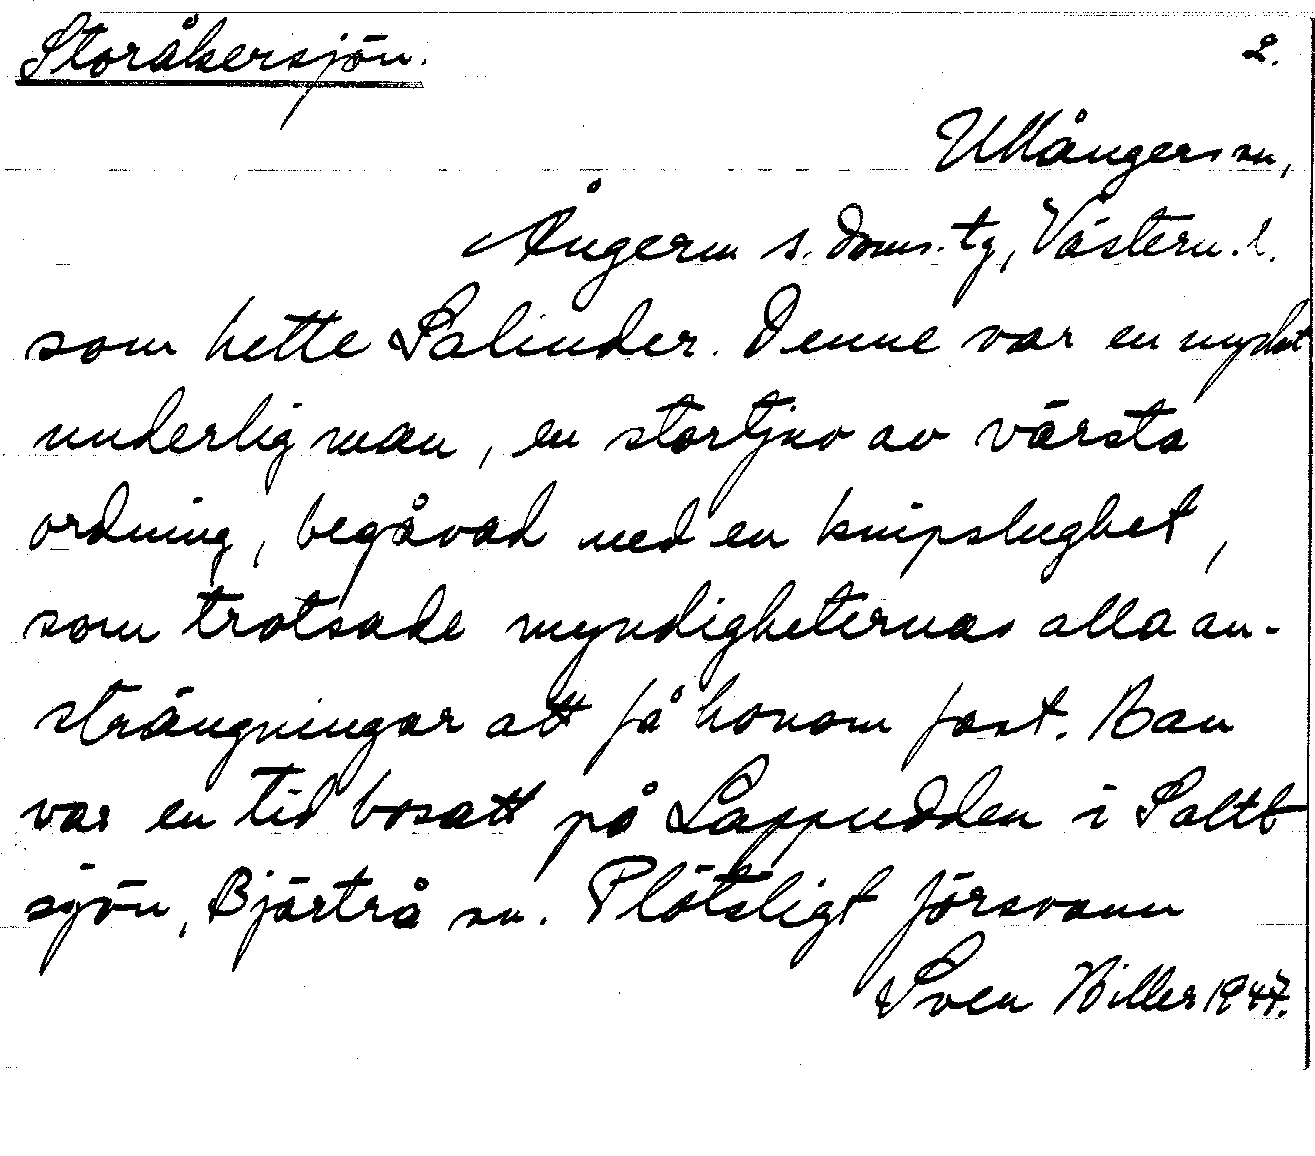 Storåkersjön. 2.
Ullångers sn,
Ångerm s. doms. tg, Västern. l.
som hette Salinder. Denne var en mycket
underlig man, en stortjuv av värsta
ordning, begåvad med en knipslughet,
som trotsade myndigheternas alla an-
strängningar att få honom fast. Han
var en tid bosatt på Lappudden i Saltb
sjön, Bjärtrå sn. Plötsligt försvann
Sven Hiller 1947.